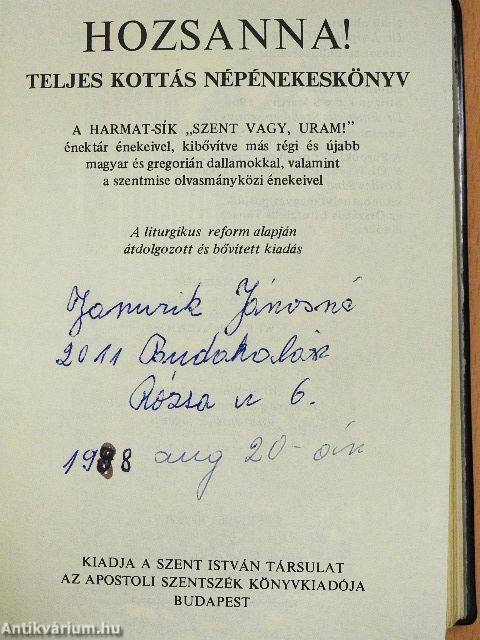 HOZSANNA!
TELJES KOTTÁS NÉPÉNEKESKÖNYV
A HARMAT-SÍK „SZENT VAGY, URAM!"
énektár énekeivel, kibővítve más régi és újabb
magyar és gregorián dallamokkal, valamint
a szentmise olvasmányközi énekeivel
A liturgikus reform alapján
átdolgozott és bővített kiadás
Janurik Jánosné
2011 Budakalász
Rózsa u 6.
1988 aug 20-án
KIADJA A SZENT ISTVÁN TÁRSULAT
AZ APOSTOLI SZENTSZÉK KÖNYVKIADÓJA
BUDAPEST
Antikvárium.hu